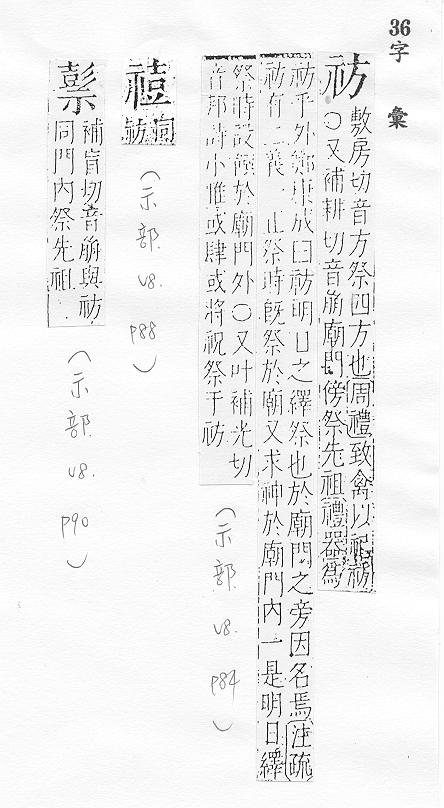 36字彙
祊
敷房切音方祭四方也周禮致禽以祀祊
○又補耕切音崩廟門傍祭先祖禮器爲
祊乎外鄭康成曰祊明日之繹祭也於廟門之旁因名焉注疏
祊有二義一正祭時旣祭於廟又求神於廟門內一是明日繹
祭時設饌於廟門外○又叶補光切
音邦詩小雅或肆或將祝祭于祊
(示部 v8. p84)
同
祊
(示部 v8. p88)
補盲切音崩與祊
同門內祭先祖.
(示部 v8. p90)